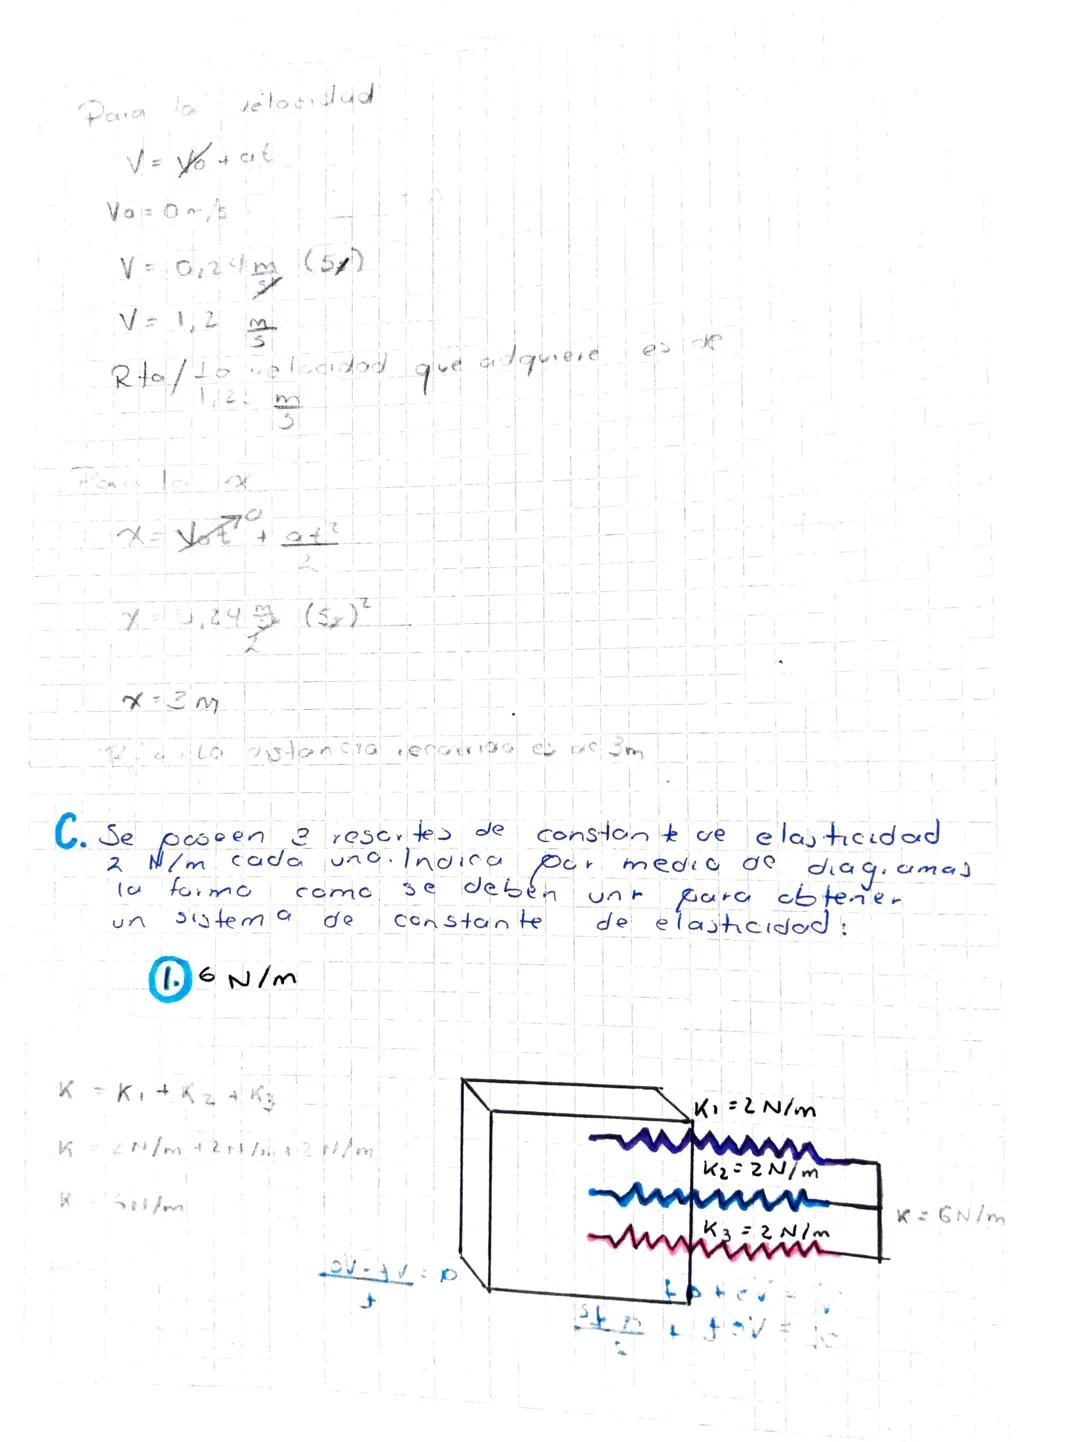 Para la velocidad
V = V0 + at
Vo = 0 m/s
V = 0,24 m/s (5s)
V = 1,2 m/s
Rta/ La velocidad que adquiere es de
1,2 m/s
Para la x
x = Vot 0 + at²/2
x = 0,24 m/s (5s)²
2
x = 3 m
Rta. La distancia recorrida es de 3m
C. Se poseen 3 resortes de constante de elasticidad
2 N/m cada uno. Indica por medio de diagramas
la forma como se deben unir para obtener
un sistema de constante de elasticidad:
1. 6 N/m
K = K1 + K2 + K3
K = 2N/m + 2N/m + 2N/m
K = 6N/m
K1 = 2 N/m
K2 = 2 N/m
K3 = 2 N/m
K = 6N/m